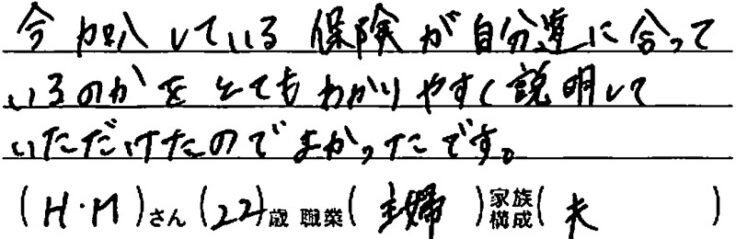 今加入している保険が自分達に合って
いるのかをとてもわかりやすく説明して
いただけたのでよかったです。
(H・M)さん(22)歳 職業(主婦)家族構成(夫)